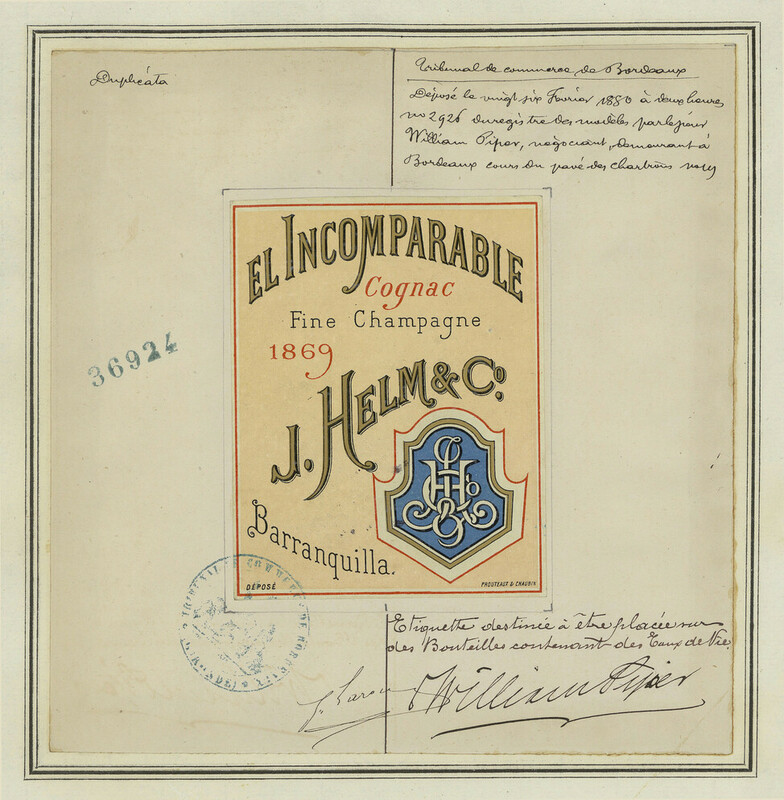 Duplicata
Tribunal de commerce de Bordeaux
Déposé le vingt six Fevrier 1880 à deux heures
no 2926 du registre des modèles par le sieur
William Piper, négociant, demeurant à
Bordeaux cours du pavé des chartrons
EL INCOMPARABLE
Cognac
Fine Champagne
1869
J. HELM & Co.
Barranquilla.
DÉPOSÉ
PROUTEAUX & CHAUBIN
36924
TRIBUNAL DE COMMERCE DE BORDEAUX
Etiquette destinée à être placée sur
des Bouteilles contenant des Eaux de Vie
William Piper